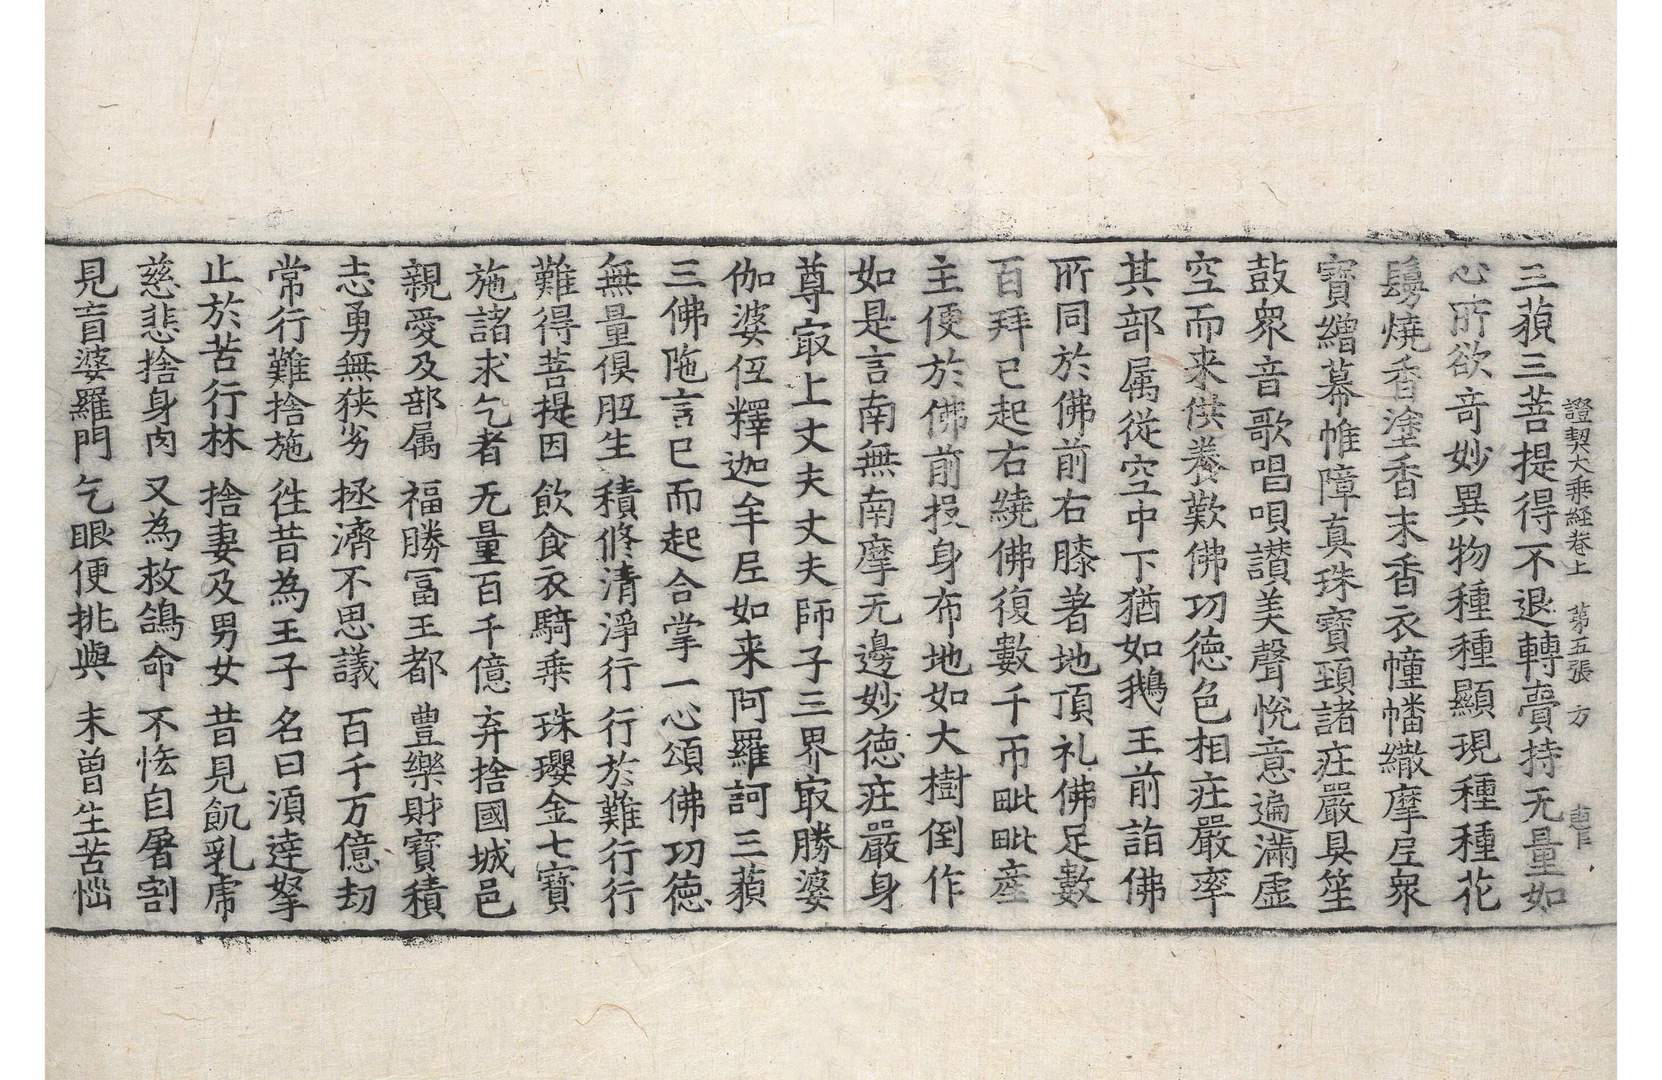 證契大乘經卷上 第五張 方
三藐三菩提得不退轉賷持无量如
心所欲竒妙異物種種顯現種種花
鬘燒香塗香末香衣幢幡繖摩尼衆
寶繒幕帷障真珠寶頚諸㽵嚴具笙
鼓衆音歌唱唄讃美聲悅意遍滿虛
空而来供養歎佛功徳色相㽵嚴率
其部属從空中下猶如鵝王前詣佛
所同於佛前右膝著地頂礼佛足數
百拜已起右繞佛復數千帀毗毗產
主便於佛前投身布地如大樹倒作
如是言南無南摩无邊妙徳㽵嚴身
尊㝡上丈夫丈夫師子三界㝡勝婆
伽婆伍釋迦牟尼如来阿羅訶三藐
三佛陁言已而起合掌一心頌佛功徳
無量俱胝生 積修清淨行 行於難行行
難得菩提因 飲食衣騎乗 珠瓔金七寶
施諸求乞者 无量百千億 弃捨國城邑
親愛及部属 福勝冨王都 豊樂財寶積
志勇無狹劣 拯濟不思議 百千万億劫
常行難捨施 徃昔為王子 名曰湏達拏
止於苦行林 捨妻及男女 昔見飢乳虎
慈悲捨身肉 又為救鴿命 不恡自屠割
見盲婆羅門 乞眼便挑與 未曽生苦惱